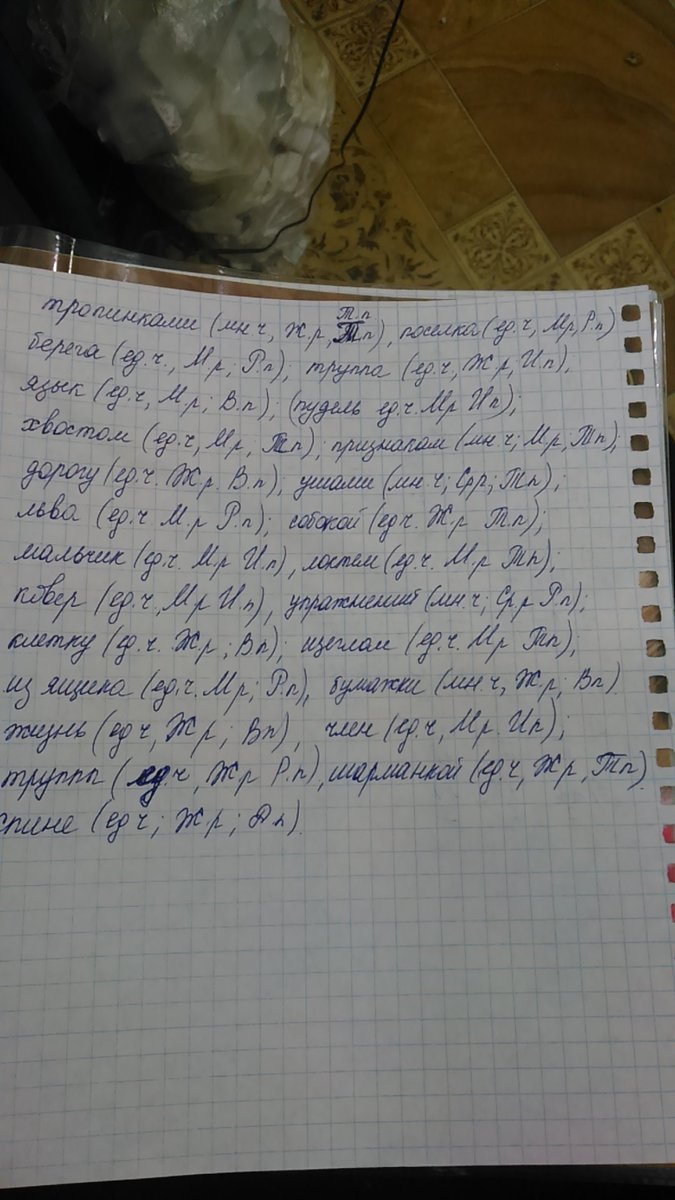 Т.п
тропинками (мн ч, Ж.р, Тп), поселка (ед.ч, Мр, Р.п)
берега (ед.ч., М.р; Р.п); труппа (ед.ч, Ж.р, И.п),
язык (ед.ч, М.р; В.п); (пудель ед.ч. М.р Ип);
хвостом (ед.ч, М.р; Тп); признакам (мн.ч; М.р; Тп);
дорогу (ед.ч. Ж.р. В.п); ушами (мн.ч; Срр; Тп);
льва (ед.ч М.р Р.п); собокой (ед.ч. Ж.р Тп);
мальчик (ед.ч. М.р И.п), локтем (ед.ч. М.р Тп);
ковер (ед.ч, М.р И.п), упражнений (мн.ч; Ср.р Р.п);
клетку (ед.ч. Ж.р; Вп); щеглом (ед.ч. М.р Тп);
из ящика (ед.ч. М.р; Р.п), бумажки (мн.ч, Ж.р; Вп).
жизнь (ед ч, Ж.р; Вп), член (ед.ч, М.р. И.п);
трупп ( ед.ч, Ж.р Р.п), шарманкой (ед.ч, Ж.р, Тп).
спине (ед ч; Ж.р; Д.п).